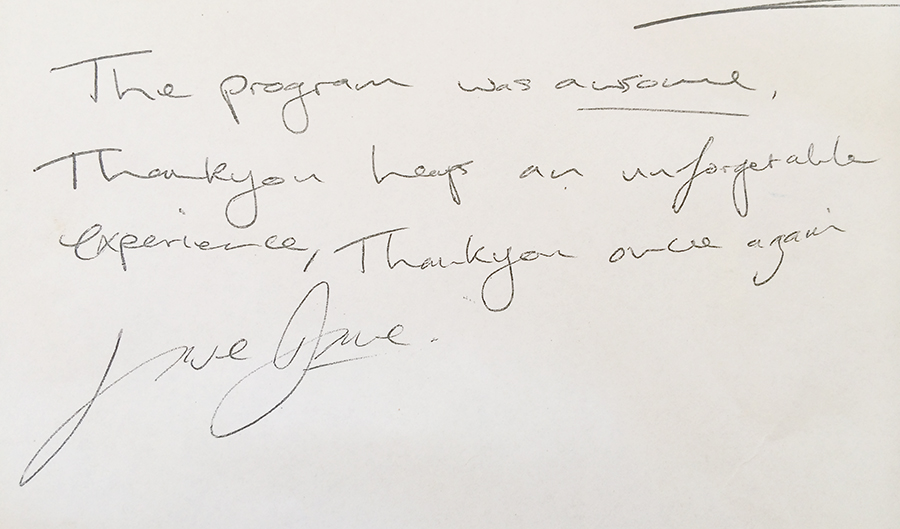 The program was awsome,
Thankyou heaps an unforgetable
experience, Thankyou once again
love